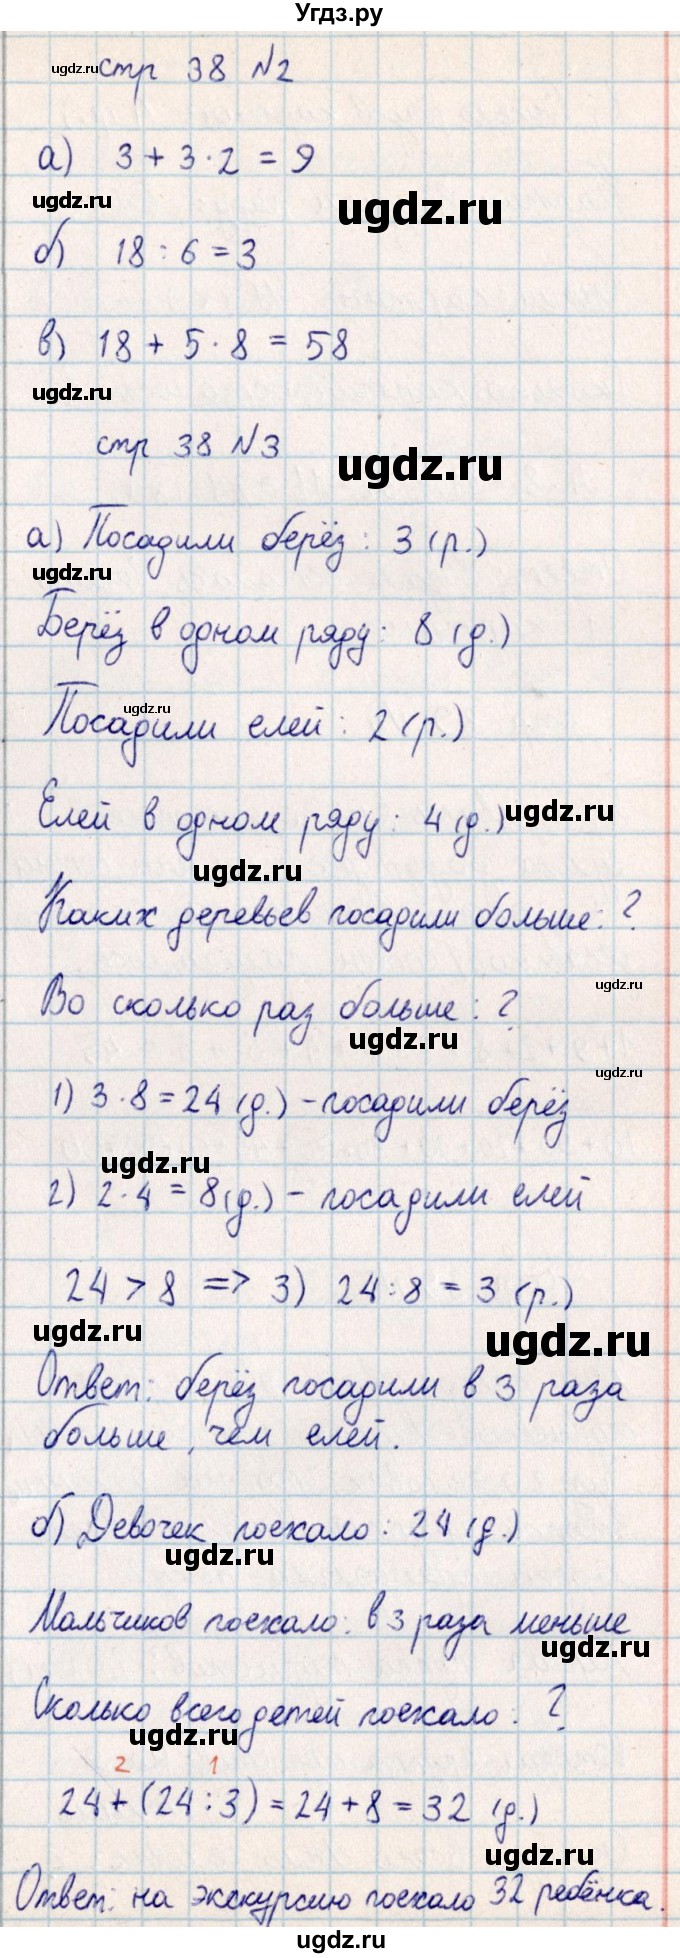 Угдз.ру
ugdz.ru стр 38 №2
а) 3 + 3 · 2 = 9
ugdz.ru ugdz.ru
б) 18 : 6 = 3
в) 18 + 5 · 8 = 58
ugdz.ru
стр 38 №3
ugdz.ru
а) Посадили берёз: 3 (р.)
ugdz.ru
Берёз в одном ряду: 8 (д.)
ugdz.ru
Посадили елей: 2 (р.)
Елей в одном ряду: 4 (д.) ugdz.ru
ugdz.ru
Каких деревьев посадили больше: ?
ugdz.ru
Во сколько раз больше: ?
ugdz.ru
ugdz.ru
1) 3 · 8 = 24 (д.) - посадили берёз
ugdz.ru
2) 2 · 4 = 8 (д.) - посадили елей
24 > 8 => 3) 24 : 8 = 3 (р.)
ugdz.ru ugdz.ru
Ответ: берёз посадили в 3 раза
больше, чем елей.
б) Девочек поехало: 24 (д.)
ugdz.ru
Мальчиков поехало: в 3 раза меньше
ugdz.ru
Сколько всего детей поехало: ?
ugdz.ru
2 1
24 + (24 : 3) = 24 + 8 = 32 (д.)
ugdz.ru
Ответ: на экскурсию поехало 32 ребёнка.
ugdz.ru